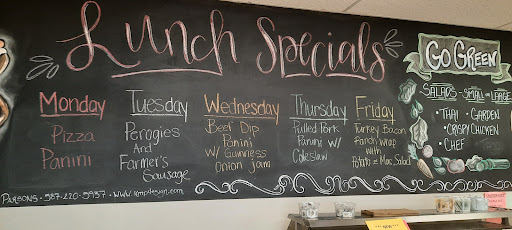 Lunch Specials
GO GREEN
SALADS - SMALL or LARGE
• THAI • GARDEN
• CRISPY CHICKEN
• CHEF
Monday
Pizza
Panini
Tuesday
Perogies
And
Farmer's
Sausage
Wednesday
Beef Dip
Panini
w/ Guinness
Onion jam
Thursday
Pulled Pork
Panini w/
Coleslaw
Friday
Turkey Bacon
Panini wrap
with
Potato or Mac Salad